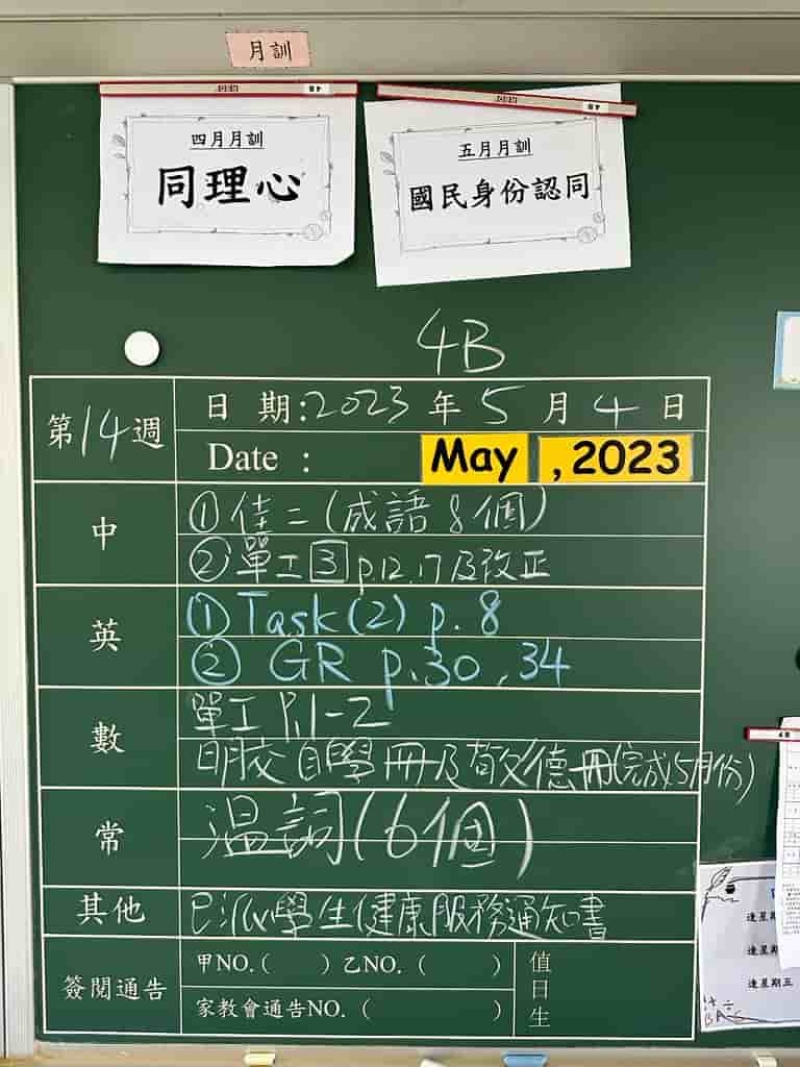 月訓
四月月訓
同理心
五月月訓
國民身份認同
4B
第14週
日 期:2023 年 5 月 4 日
Date : May , 2023
中
①佳二(成語8個)
②單工3 p.12,17及改正
英
① Task(2) p.8
② GR p.30,34
數
單工 P.1-2
明交自學冊及敬德冊(完成5月份)
常
溫詞(6個)
其他
已派學生健康服務通知書
簽閱通告
甲NO.( ) 乙NO.( )
家教會通告NO.( )
值日生
逢星期
逢星期
逢星期五